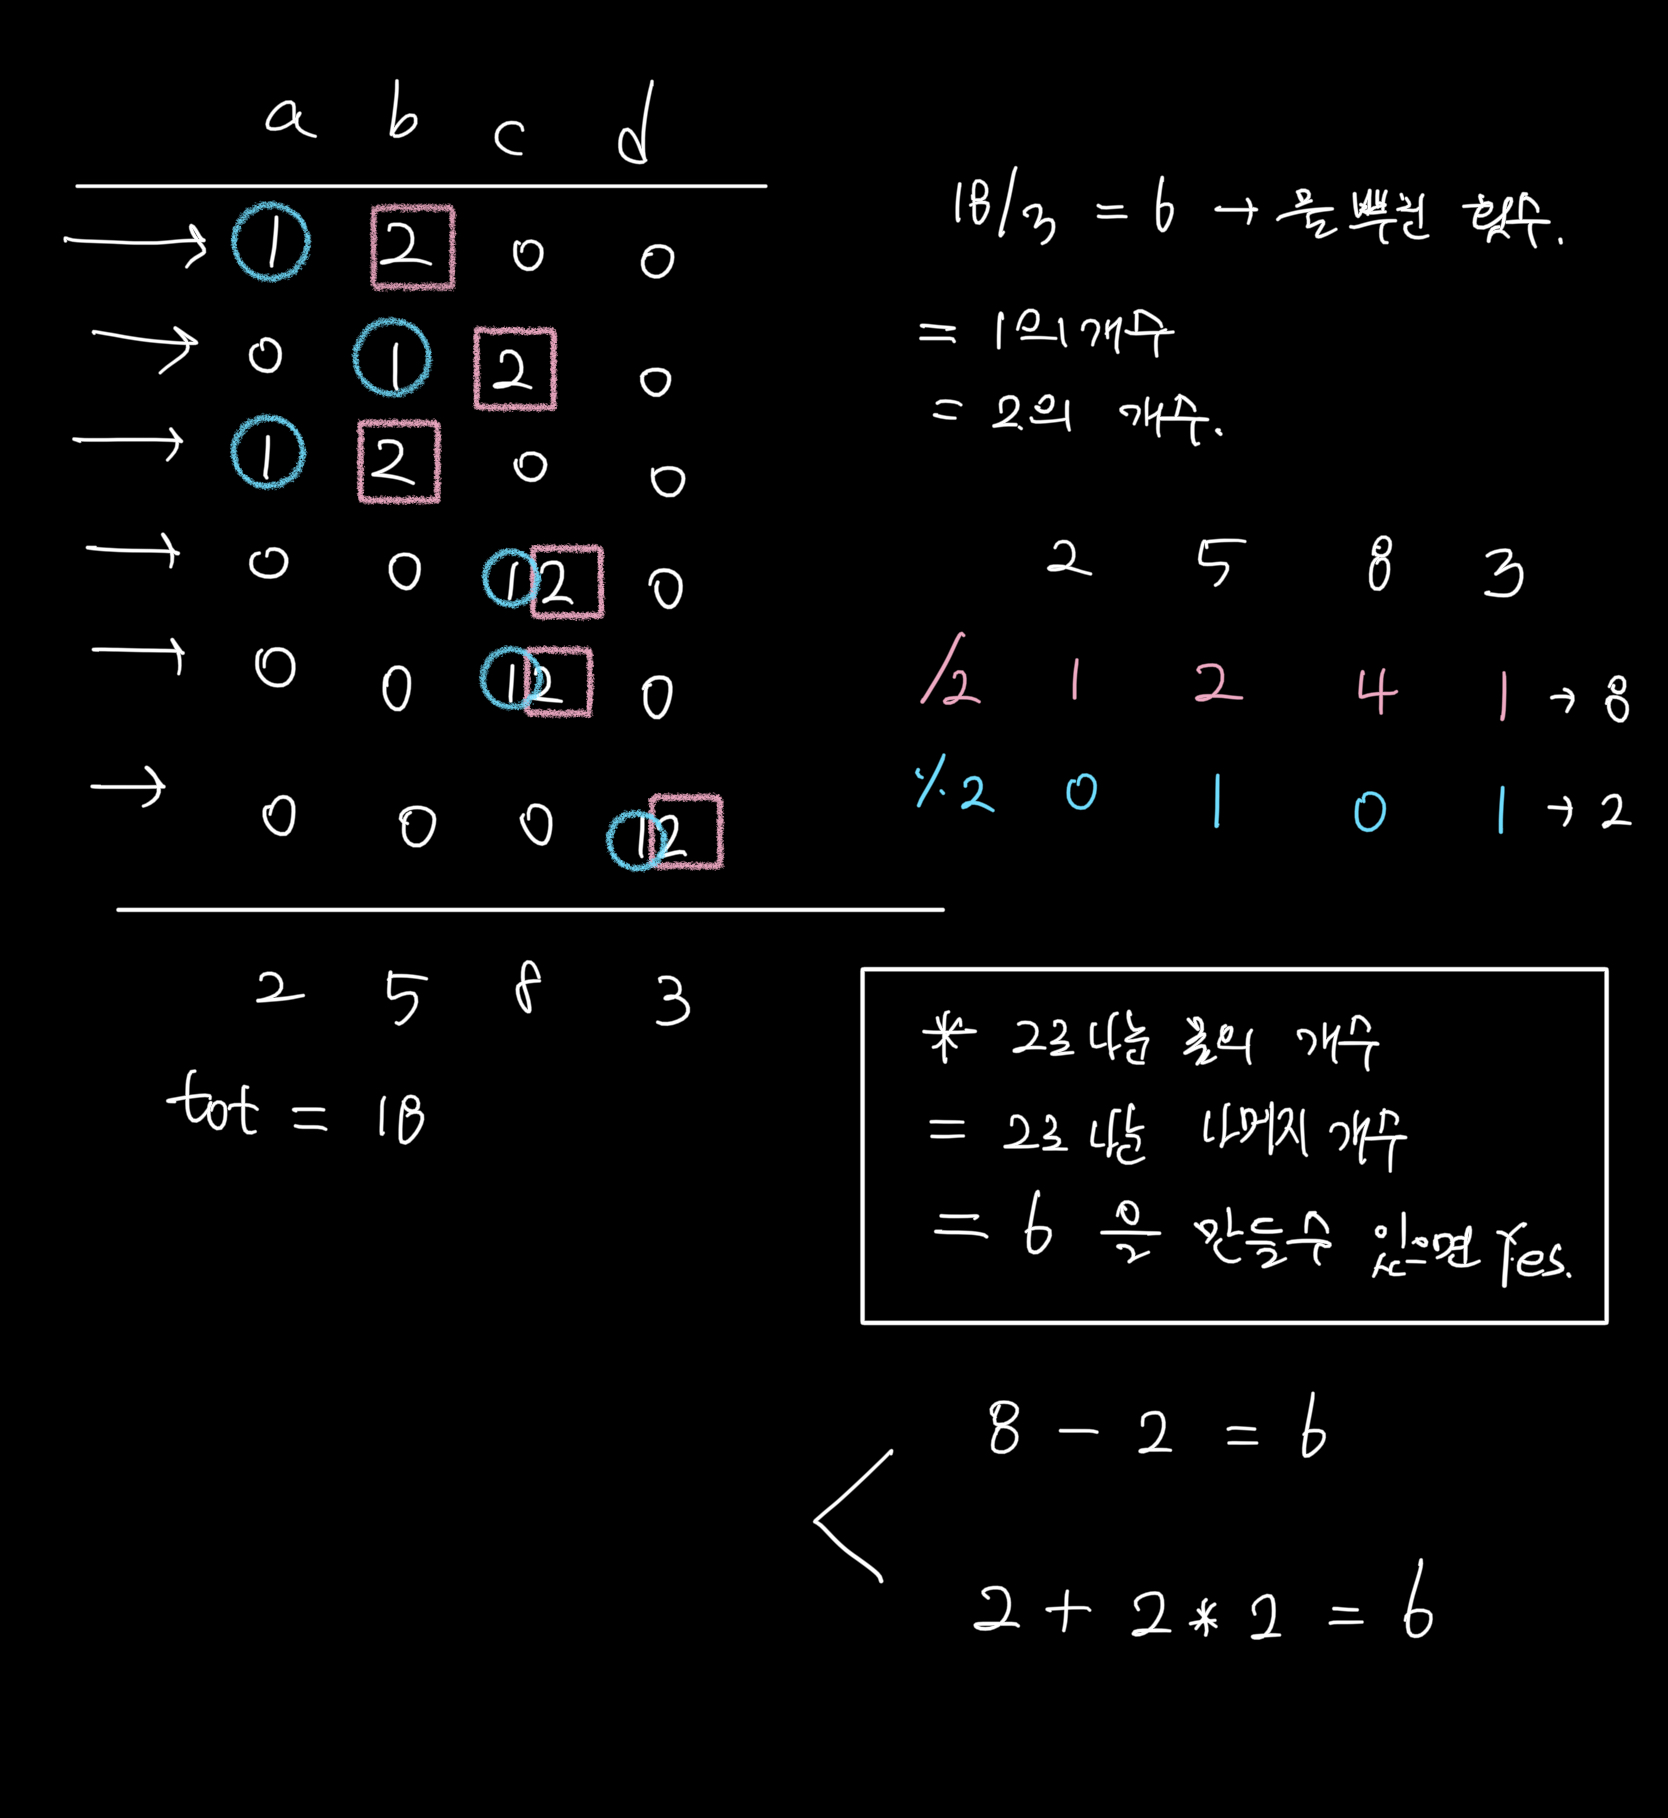 a b c d
1 2 0 0
0 1 2 0
1 2 0 0
0 0 12 0
0 0 12 0
0 0 0 12
2 5 8 3
tot = 18
18/3 = 6 → 물 뿌린 횟수.
= 1의 개수
= 2의 개수.
2 5 8 3
/2 1 2 4 1 → 8
%2 0 1 0 1 → 2
* 2로 나눈 몫의 개수
= 2로 나눈 나머지 개수
= 6 으로 만들수 있으면 Yes.
8 - 2 = 6
2 + 2 * 2 = 6